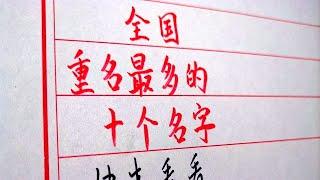 全国
重名最多的
十个名字